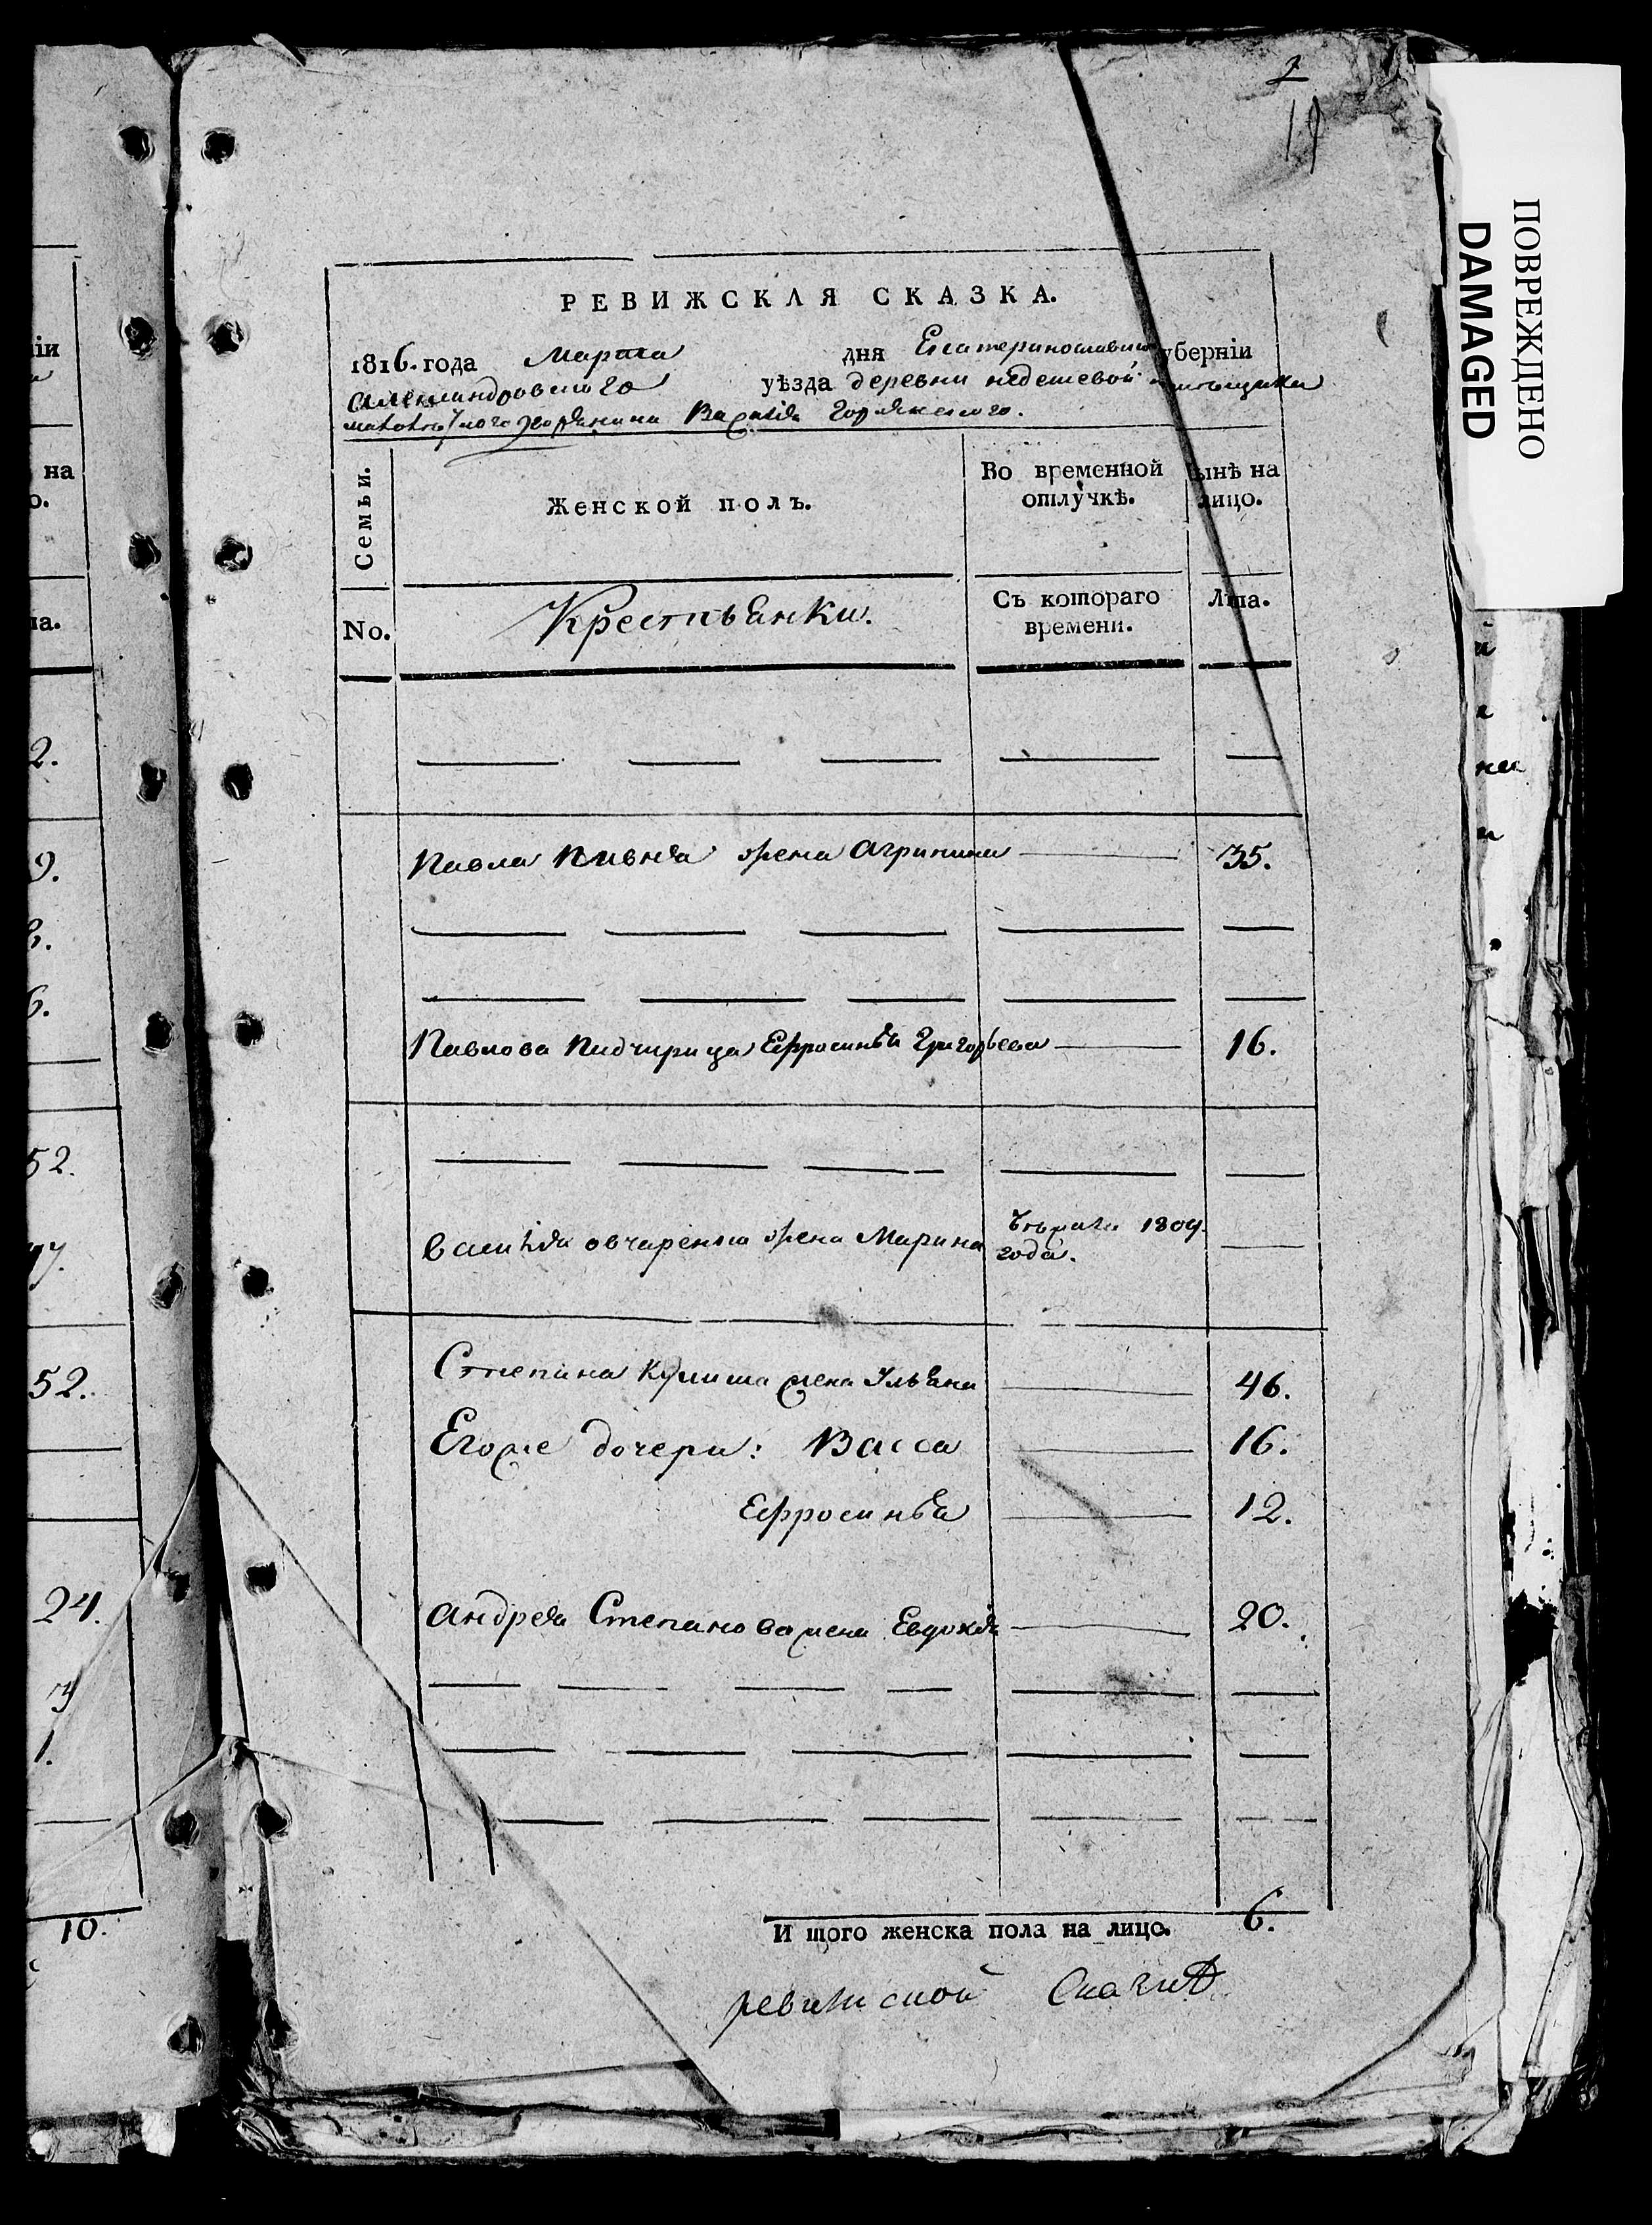 2
19
ПОВРЕЖДЕНО
DAMAGED
РЕВИЖСКАЯ СКАЗКА.
1816. года Марта дня Екатеринославской губерніи
Александровского уѣзда деревни недешевой помѣщика
дворянина Василія Горянского.
Семьи.
Женской полъ.
Во временной
отлучкѣ.
Нынѣ на
лицо.
No.
Крестьянки.
Съ котораго
времени.
Лѣта.
Павла Пивня жена Агрипина 35.
Павлова Падчирица Ефросинья Григорьева 16.
Василія овчаренка жена Марина 1809.
года.
Степана Кулиша жена Ульяна 46.
Егоже дочери: Васса 16.
Ефросинья 12.
Андрея Степанова жена Евдокія 20.
И того женска пола на лицо. 6.
ревижской Сказки
іи
на
о.
та.
2.
9.
6.
52.
52.
24.
1.
10.